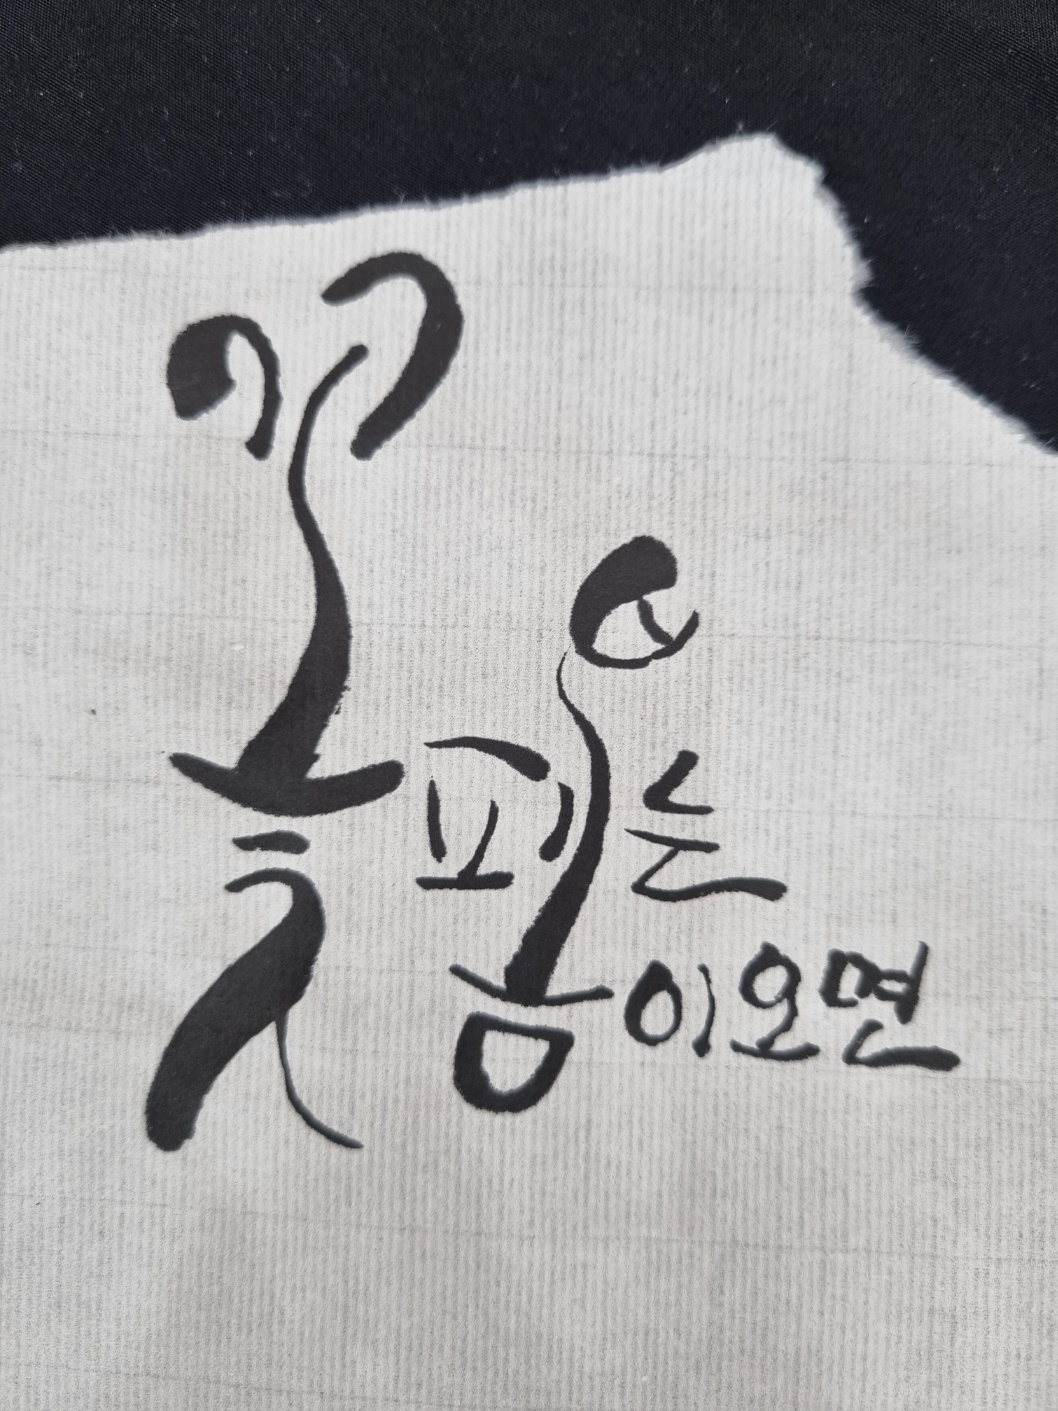 꽃피는
봄이오면